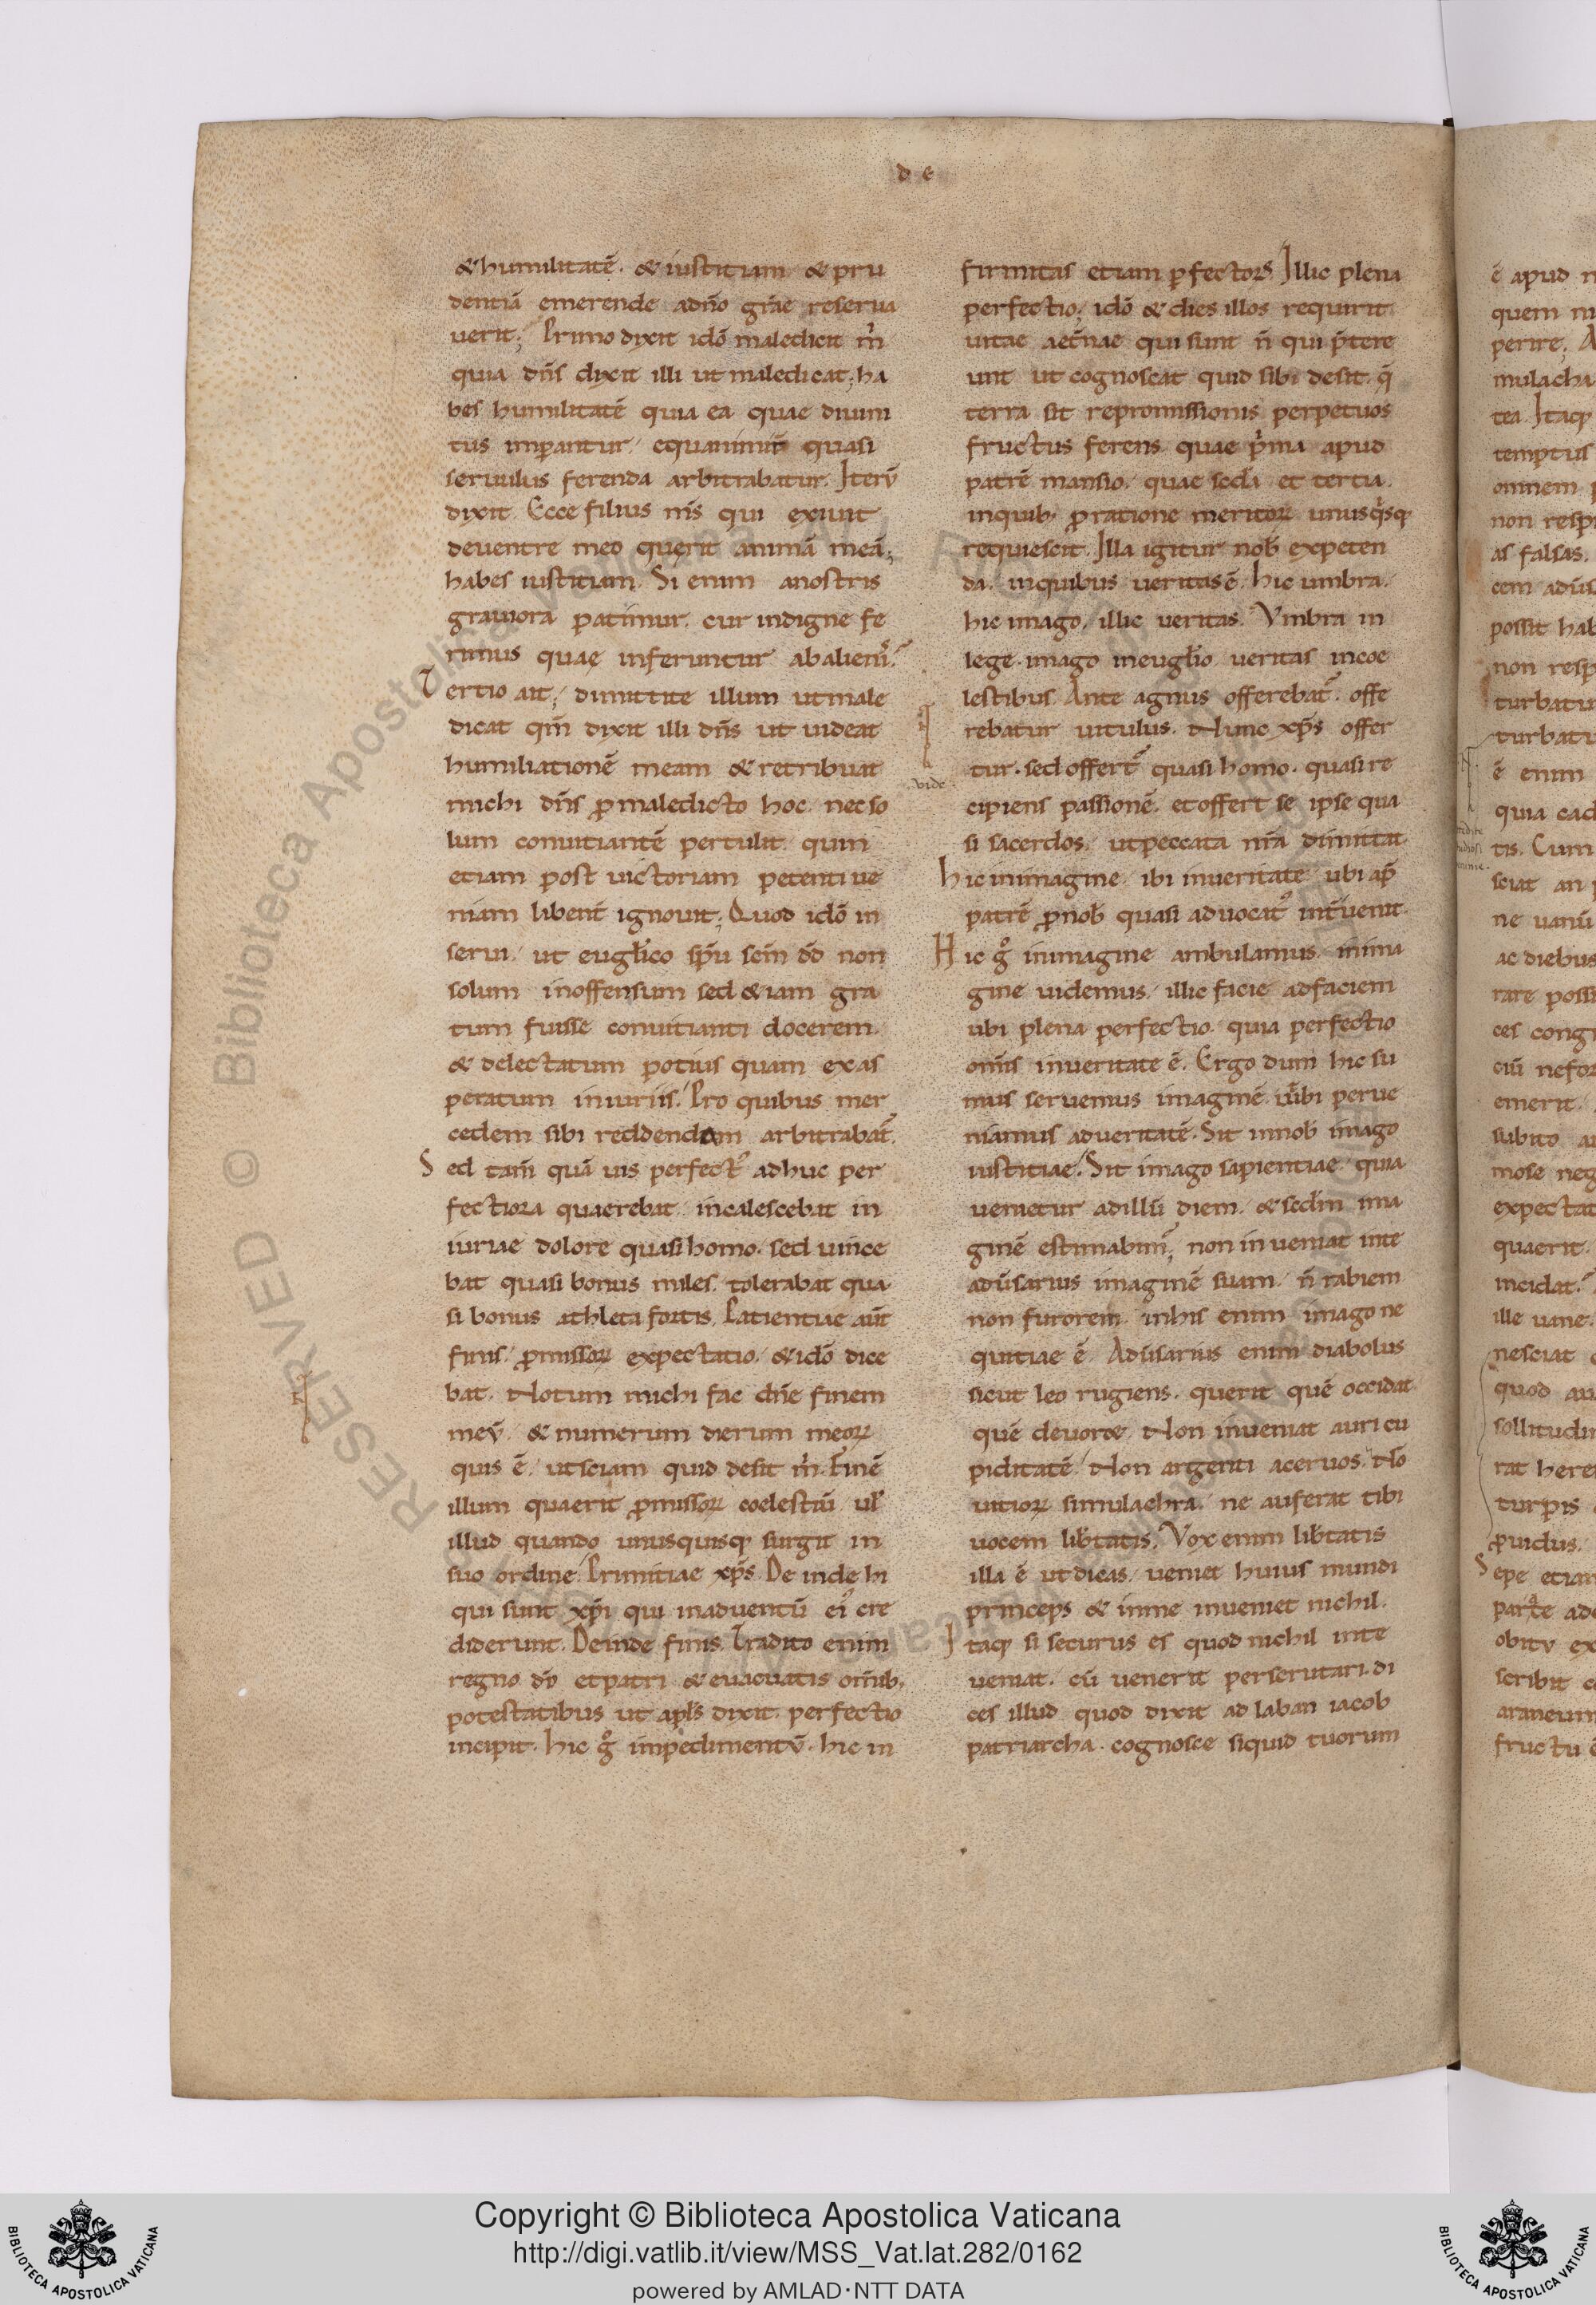 d e
& humilitatē. & iustitiam & pru
dentiā emerende adn̄o grāe reserua
uerit; Primo dixit idō maledicit m̄
quia dn̄s dixit illi ut maledicat; ha
bes humilitatē quia ea quae diuini
tus imperantur, equanimit̄ quasi
seruulus ferenda arbitrabatur. Iterū
dixit. Ecce filius m̄s qui exiuit
deuentre meo quęrit animā meā;
habes iustitiam. Si enim anostris
grauiora patimur, cur indigne fe
rimus quae inferuntur abalieni᷒.
Tertio ait; dimittite illum utmale
dicat qm̄ dixit illi dn̄s ut uideat
humiliationē meam & retribuat
michi dn̄s ꝓmaledicto hoc. necso
lum conuitiantē pertulit. quin
etiam post uictoriam petenti ue
niam libent̄ ignouit; Quod idō in
serui, ut eugl̄ico sp̄u sc̄m dd̄ non
solum inoffensum sed &iam gra
tum fuisse conuitianti docerem
& delectatum potius quam exas
peratum iniuriis. Pro quibus mer
cedem sibi reddendam arbitrabat᷒.
Sed tam̄ quāuis perfect᷒ adhuc per
fectiora quaerebat. incalescebat in
iuriae dolore quasi homo. sed uince
bat quasi bonus miles. tolerabat qua
si bonus athleta fortis. Patientiae aūt
finis. ꝓmissoꝝ expectatio. & idō dice
bat. Notum michi fac dn̄e finem
meū. & numerum dierum meoꝝ
quis ē. utsciam quid desit m̄. Finē
illum quaerit ꝓmissoꝝ coelestiū ul̄
illud quando unusquisq; surgit in
suo ordine. Primitiae xp̄s. De inde hi
qui sunt xp̄i qui inaduentū ei᷒ cre
diderunt. Deinde finis. Tradito enim
regno dō etpatri & euacuatis omīb;
potestatibus ut apl̄s dixit. perfectio
incipit. hic g̊ impedimentū. hic in
firmitas etiam ꝑfectoꝝ. Illic plena
perfectio; idō & dies illos requirit
uitae aet̄nae qui sunt n̄ qui p̄tere
unt ut cognoscat quid sibi desit. q̄
terra sit repromissionis perpetuos
fructus ferens. quae p̄ma apud
patrē mansio. quae sec̄da et tertia.
inquib; ꝓratione meritoꝝ unusq̄sq;
requiescit. Illa igitur nob̄ expeten
da. inquibus ueritas ē. hic umbra.
hic imago. illic ueritas. Vmbra in
lege. imago ineugl̄io ueritas incoe
lestibus. Ante agnus offerebat᷒. offe
rebatur uitulus. Nunc xp̄s offer
tur. sed offert᷒ quasi homo. quasi re
vide
cipiens passionē. et offert se ipse qua
si sacerdos. utpeccata nr̄a dimittat.
hic inimagine. ibi inueritate ubi ap̄
patrē ꝓnob̄ quasi aduocat᷒ int̄uenit.
Hic g̊ inimagine ambulamus. inima
gine uidemus. illic facie adfaciem
ubi plena perfectio. quia perfectio
omīs inueritate ē. Ergo dum hic su
mus seruemus imaginē. ut ibi perue
niamus adueritatē. Sit innob̄ imago
iustitiae. Sit imago sapientiae. quia
uenietur adillū diem. & sec̄dm ima
ginē estimabim᷒; non inueniat inte
adūsarius imaginē suam. n̄ rabiem
non furorem. inhis enim imago ne
quitiae ē. Adūsarius enim diabolus
sicut leo rugiens. querit quē occidat
quē deuoret. Non inueniat auri cu
piditatē. Non argenti aceruos. Nō
uitioꝝ simulachra. ne auferat tibi
uocem lib̄tatis. Vox enim lib̄tatis
illa ē ut dicas. ueniet huius mundi
princeps & inme inueniet nichil.
Itaq; si securus es quod nichil inte
ueniat. cū uenerit perscrutari. di
ces illud quod dixit ad laban iacob
patriarcha. cognosce siquid tuorum